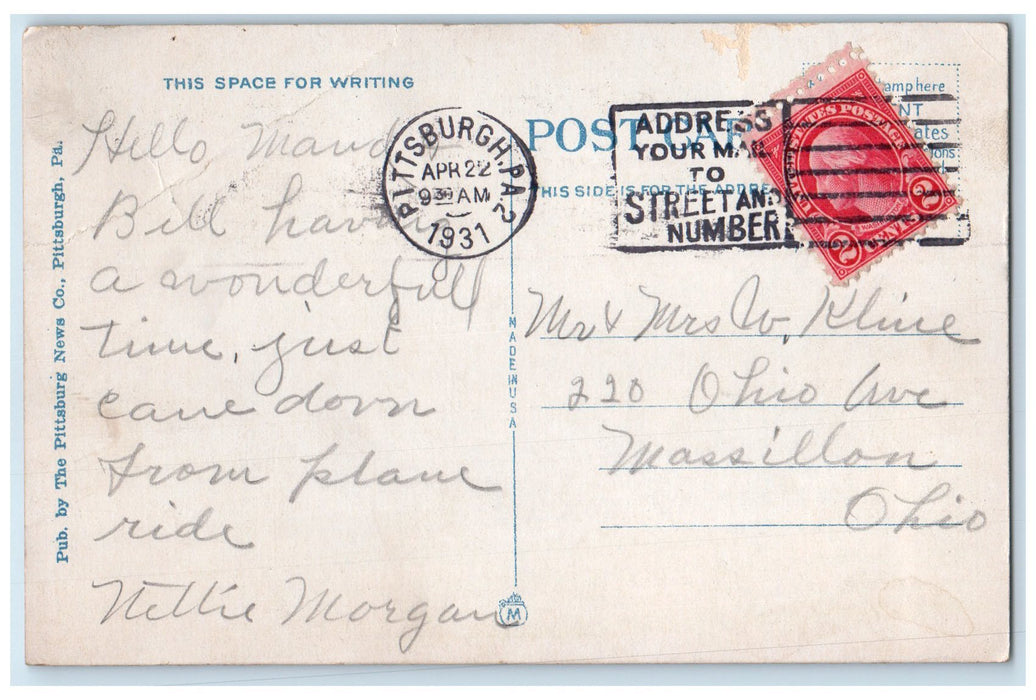 THIS SPACE FOR WRITING
POST CAR
THIS SIDE IS FOR THE ADDRE
PITTSBURGH, PA. 2
APR 22
930 AM
1931
ADDRESS
YOUR MAIL
TO
STREET AND
NUMBER
UNITED STATES POSTAGE
2 CENTS 2
amp here
NT
ates
ions
Hello Maud &
Bill having
a wonderfull
time, just
came down
from plane
ride
Nettie Morgan
Mr & Mrs W. Kline
220 Ohio Ave
Massillon
Ohio
MADE IN USA
M
Pub. by The Pittsburg News Co., Pittsburgh, Pa.